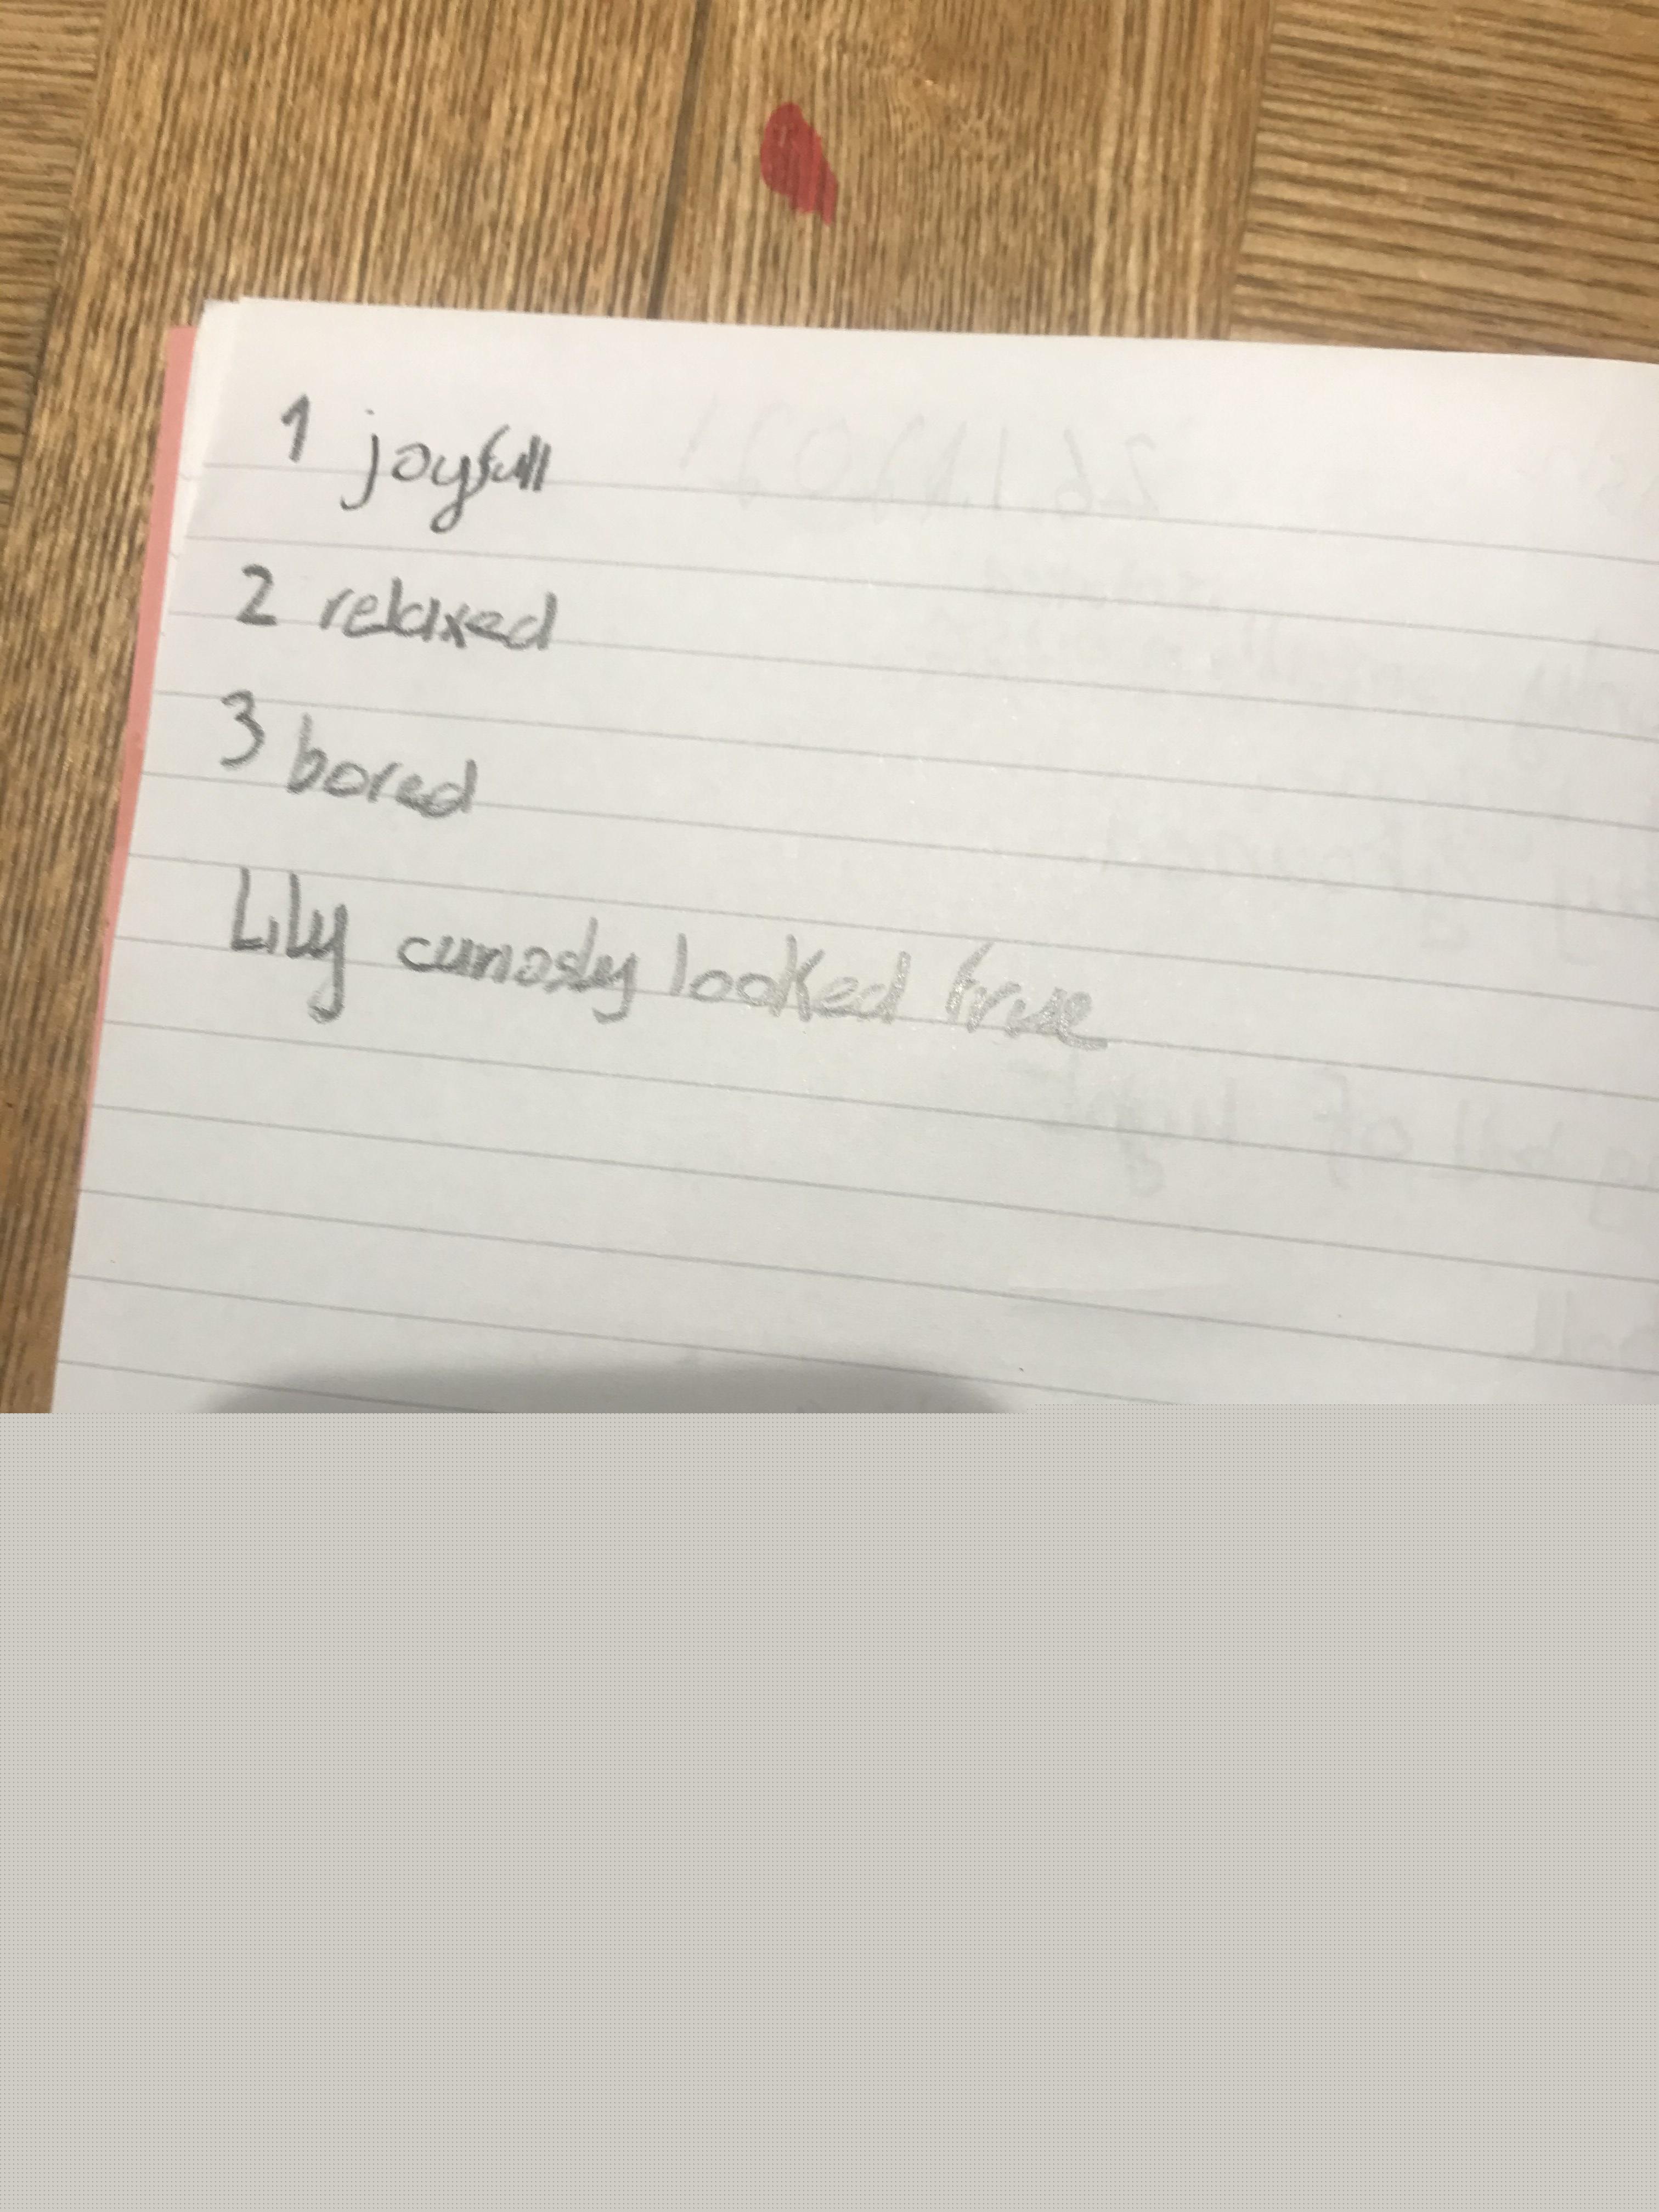 1 joyfull
2 relaxed
3 bored
Lily curiosly looked true